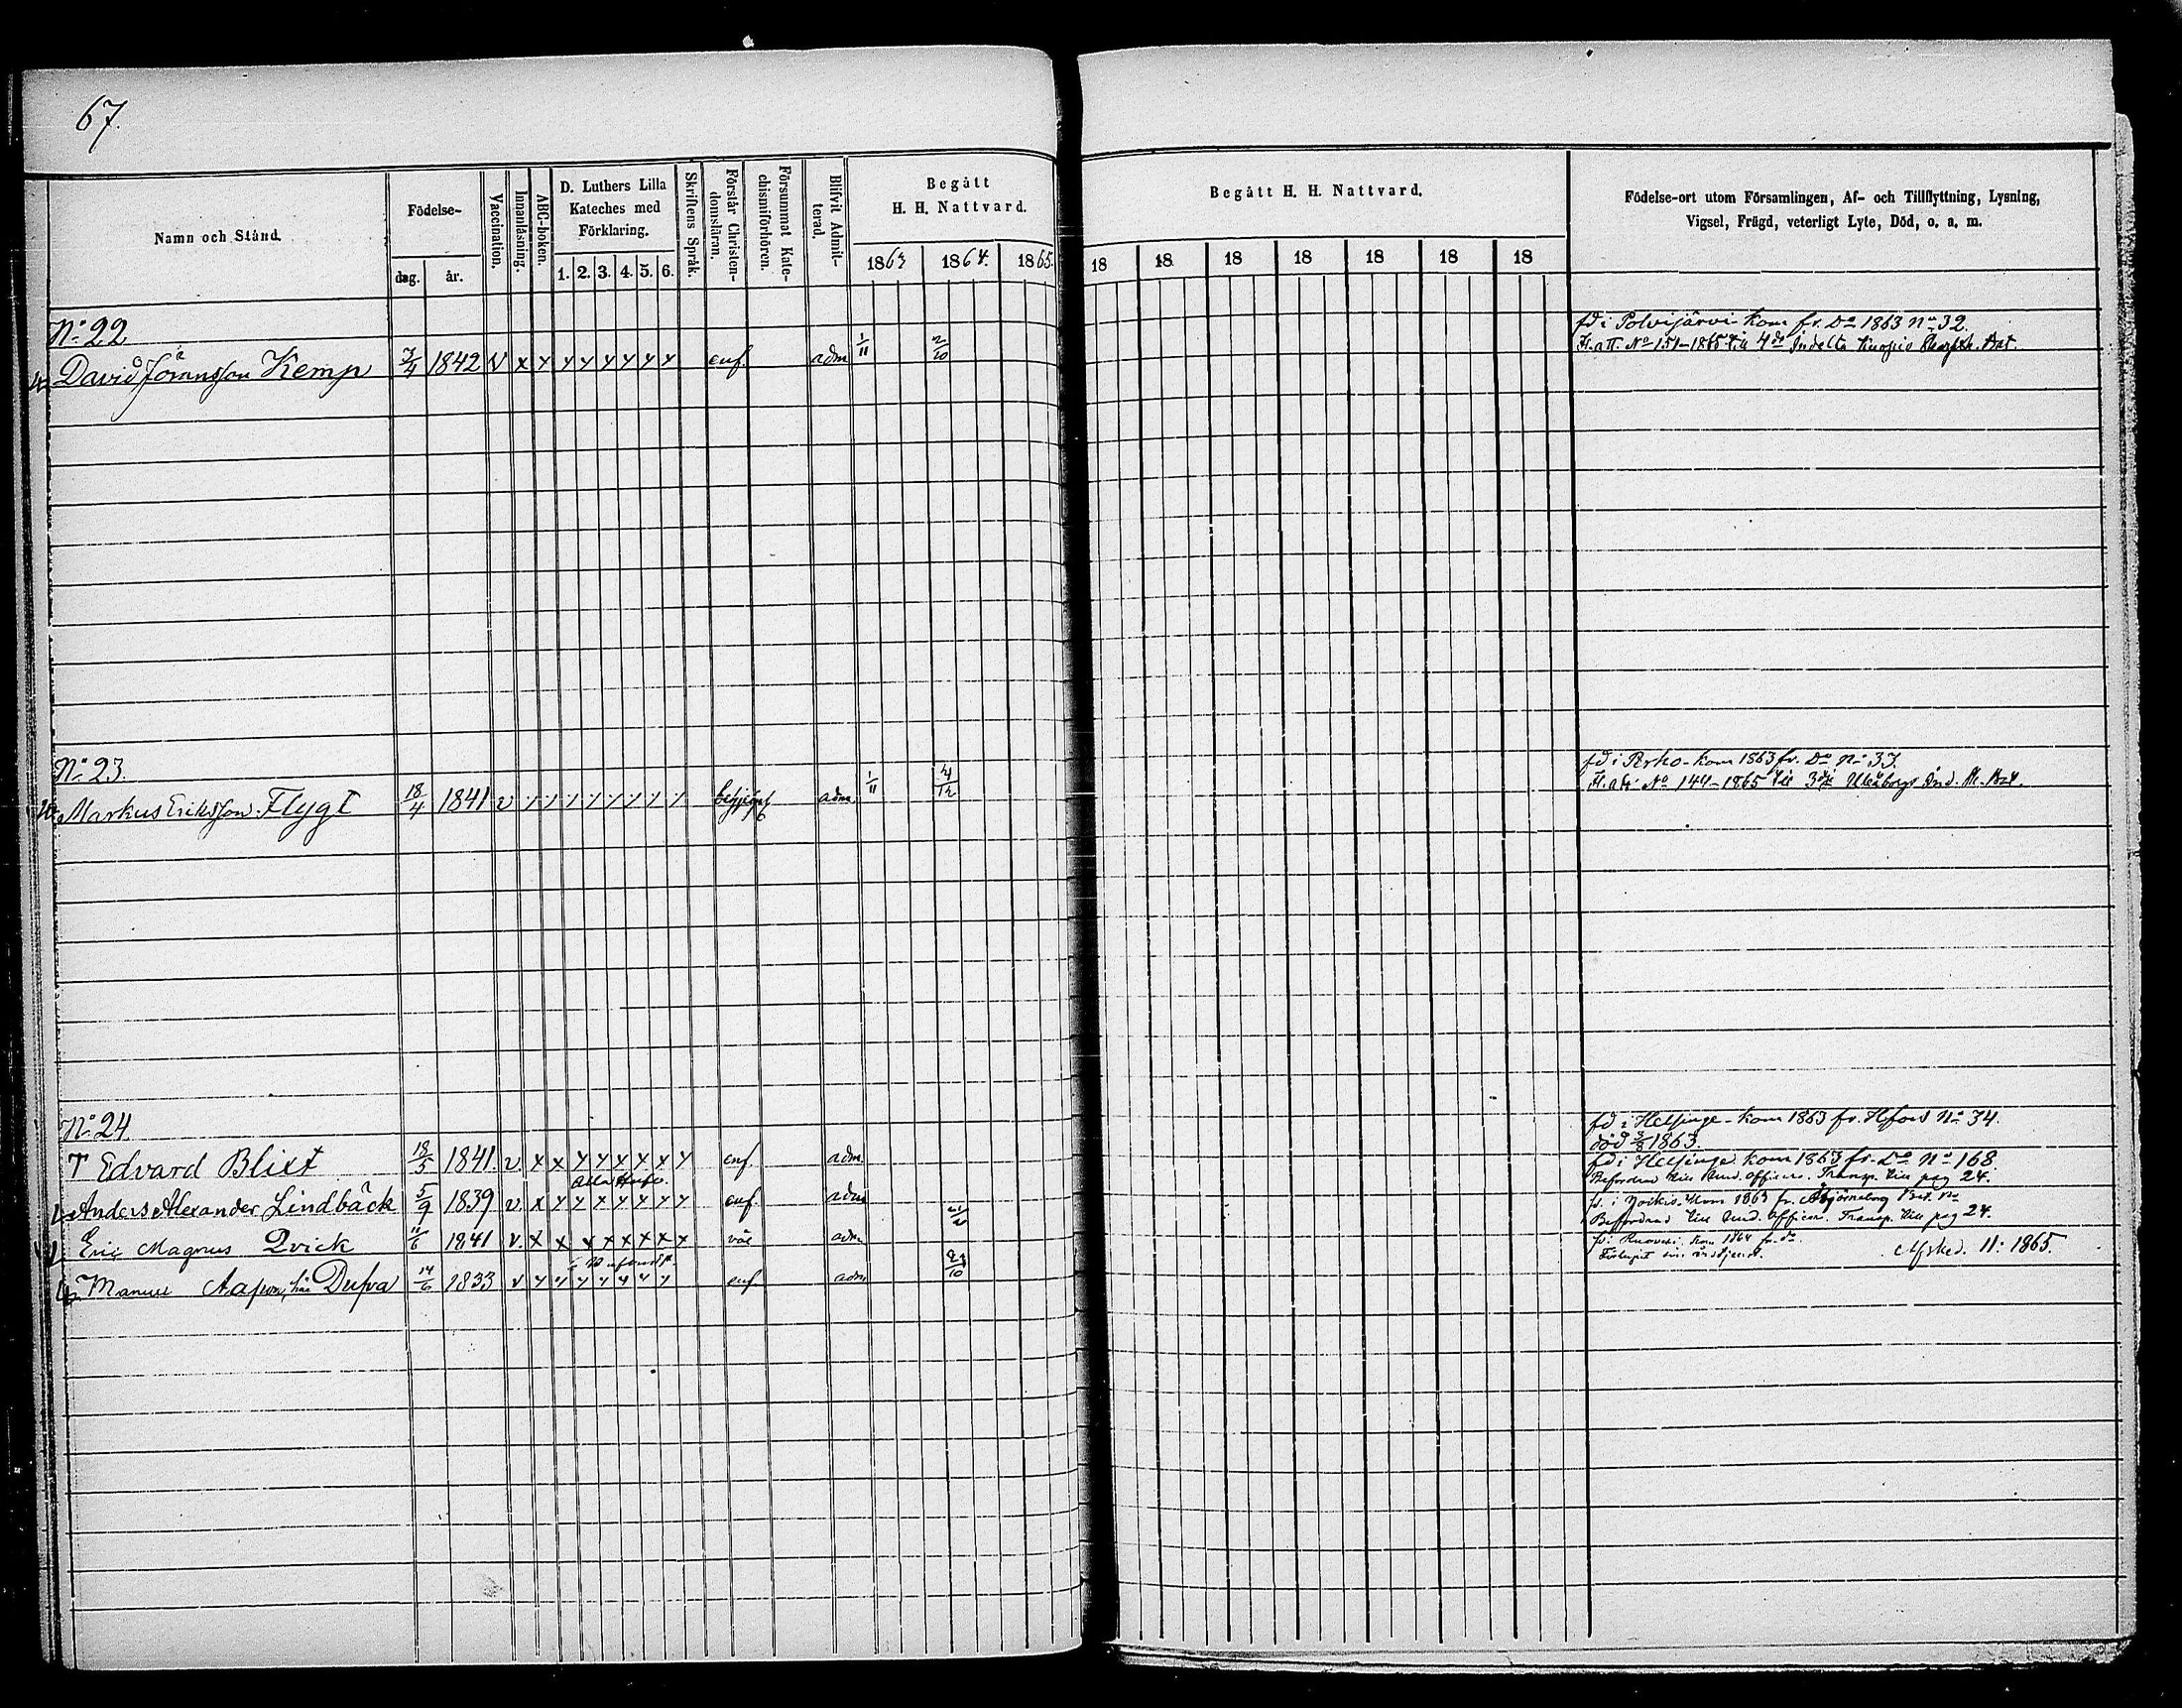 67.
Namn och Stånd.
Födelse-
dag. år.
Vaccination.
Innanläsning.
ABC-boken.
D. Luthers Lilla
Kateches med
Förklaring.
1. 2. 3. 4. 5. 6.
Skriftens Språk.
Förstår Christen-
domsläran.
Försummat Kate-
chismiförhören.
Blifvit Admit-
terad.
Begått
H. H. Nattvard.
1863 1864. 1865.
Begått H. H. Nattvard.
18 18. 18 18 18 18 18
Födelse-ort utom Församlingen, Af- och Tillflyttning, Lysning,
Vigsel, Frägd, veterligt Lyte, Död, o. a. m.
No 22
fd i Polvijärvi - kom fr. Do 1863 No 32.
David Göransson Kemp 7/4 1842 v x x y y y y y y enf. adm 1/11 2/10
No 151-1865 till 4de Indelta Kuopio Bat.
No 23
fd i Perho - kom 1863 fr. Do No 33.
Markus Eriksson Flygt 18/4 1841 v adm. 1/11 4/12
No 144-1865 till 3dje Uleåborgs Ind. Bat.
No 24
fd i Helsinge - kom 1863 fr. Hfors No 34.
död 1863.
T Edvard Blixt 18/5 1841 v. x x y y x y x y enf. adm.
fd i Helsinge kom 1863 fr. Do No 168
Befordrad till Und. officer. Transp. till pag 24.
Anders Alexander Lindbäck 5/9 1839 v. x y y x y y y y enf. adm
kom 1863 fr. Björneborg Bat. No
Befordrad till Und. officer. Transp. till pag 24.
Eric Magnus Qvick 11/6 1841 v. x x x x x x x väl adm
kom 1864 fr. do
Afsked. 11: 1865.
Manuel Dufva 14/6 1833 v y y y y y y y enf adm